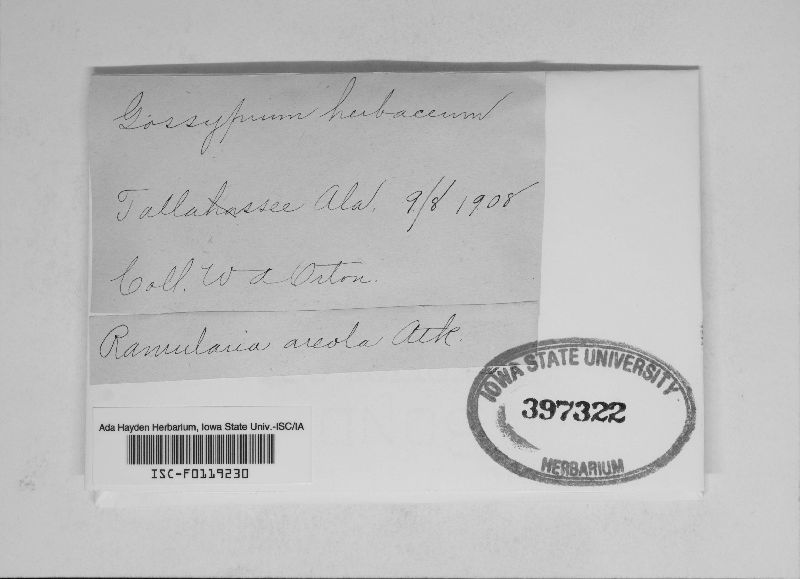 Gossypium herbaceum
Tallahassee Ala. 9/8 1908
Coll. W A Orton.
Ramularia areola Atk.
IOWA STATE UNIVERSITY
397322
HERBARIUM
Ada Hayden Herbarium, Iowa State Univ.-ISC/IA
ISC-F0119230